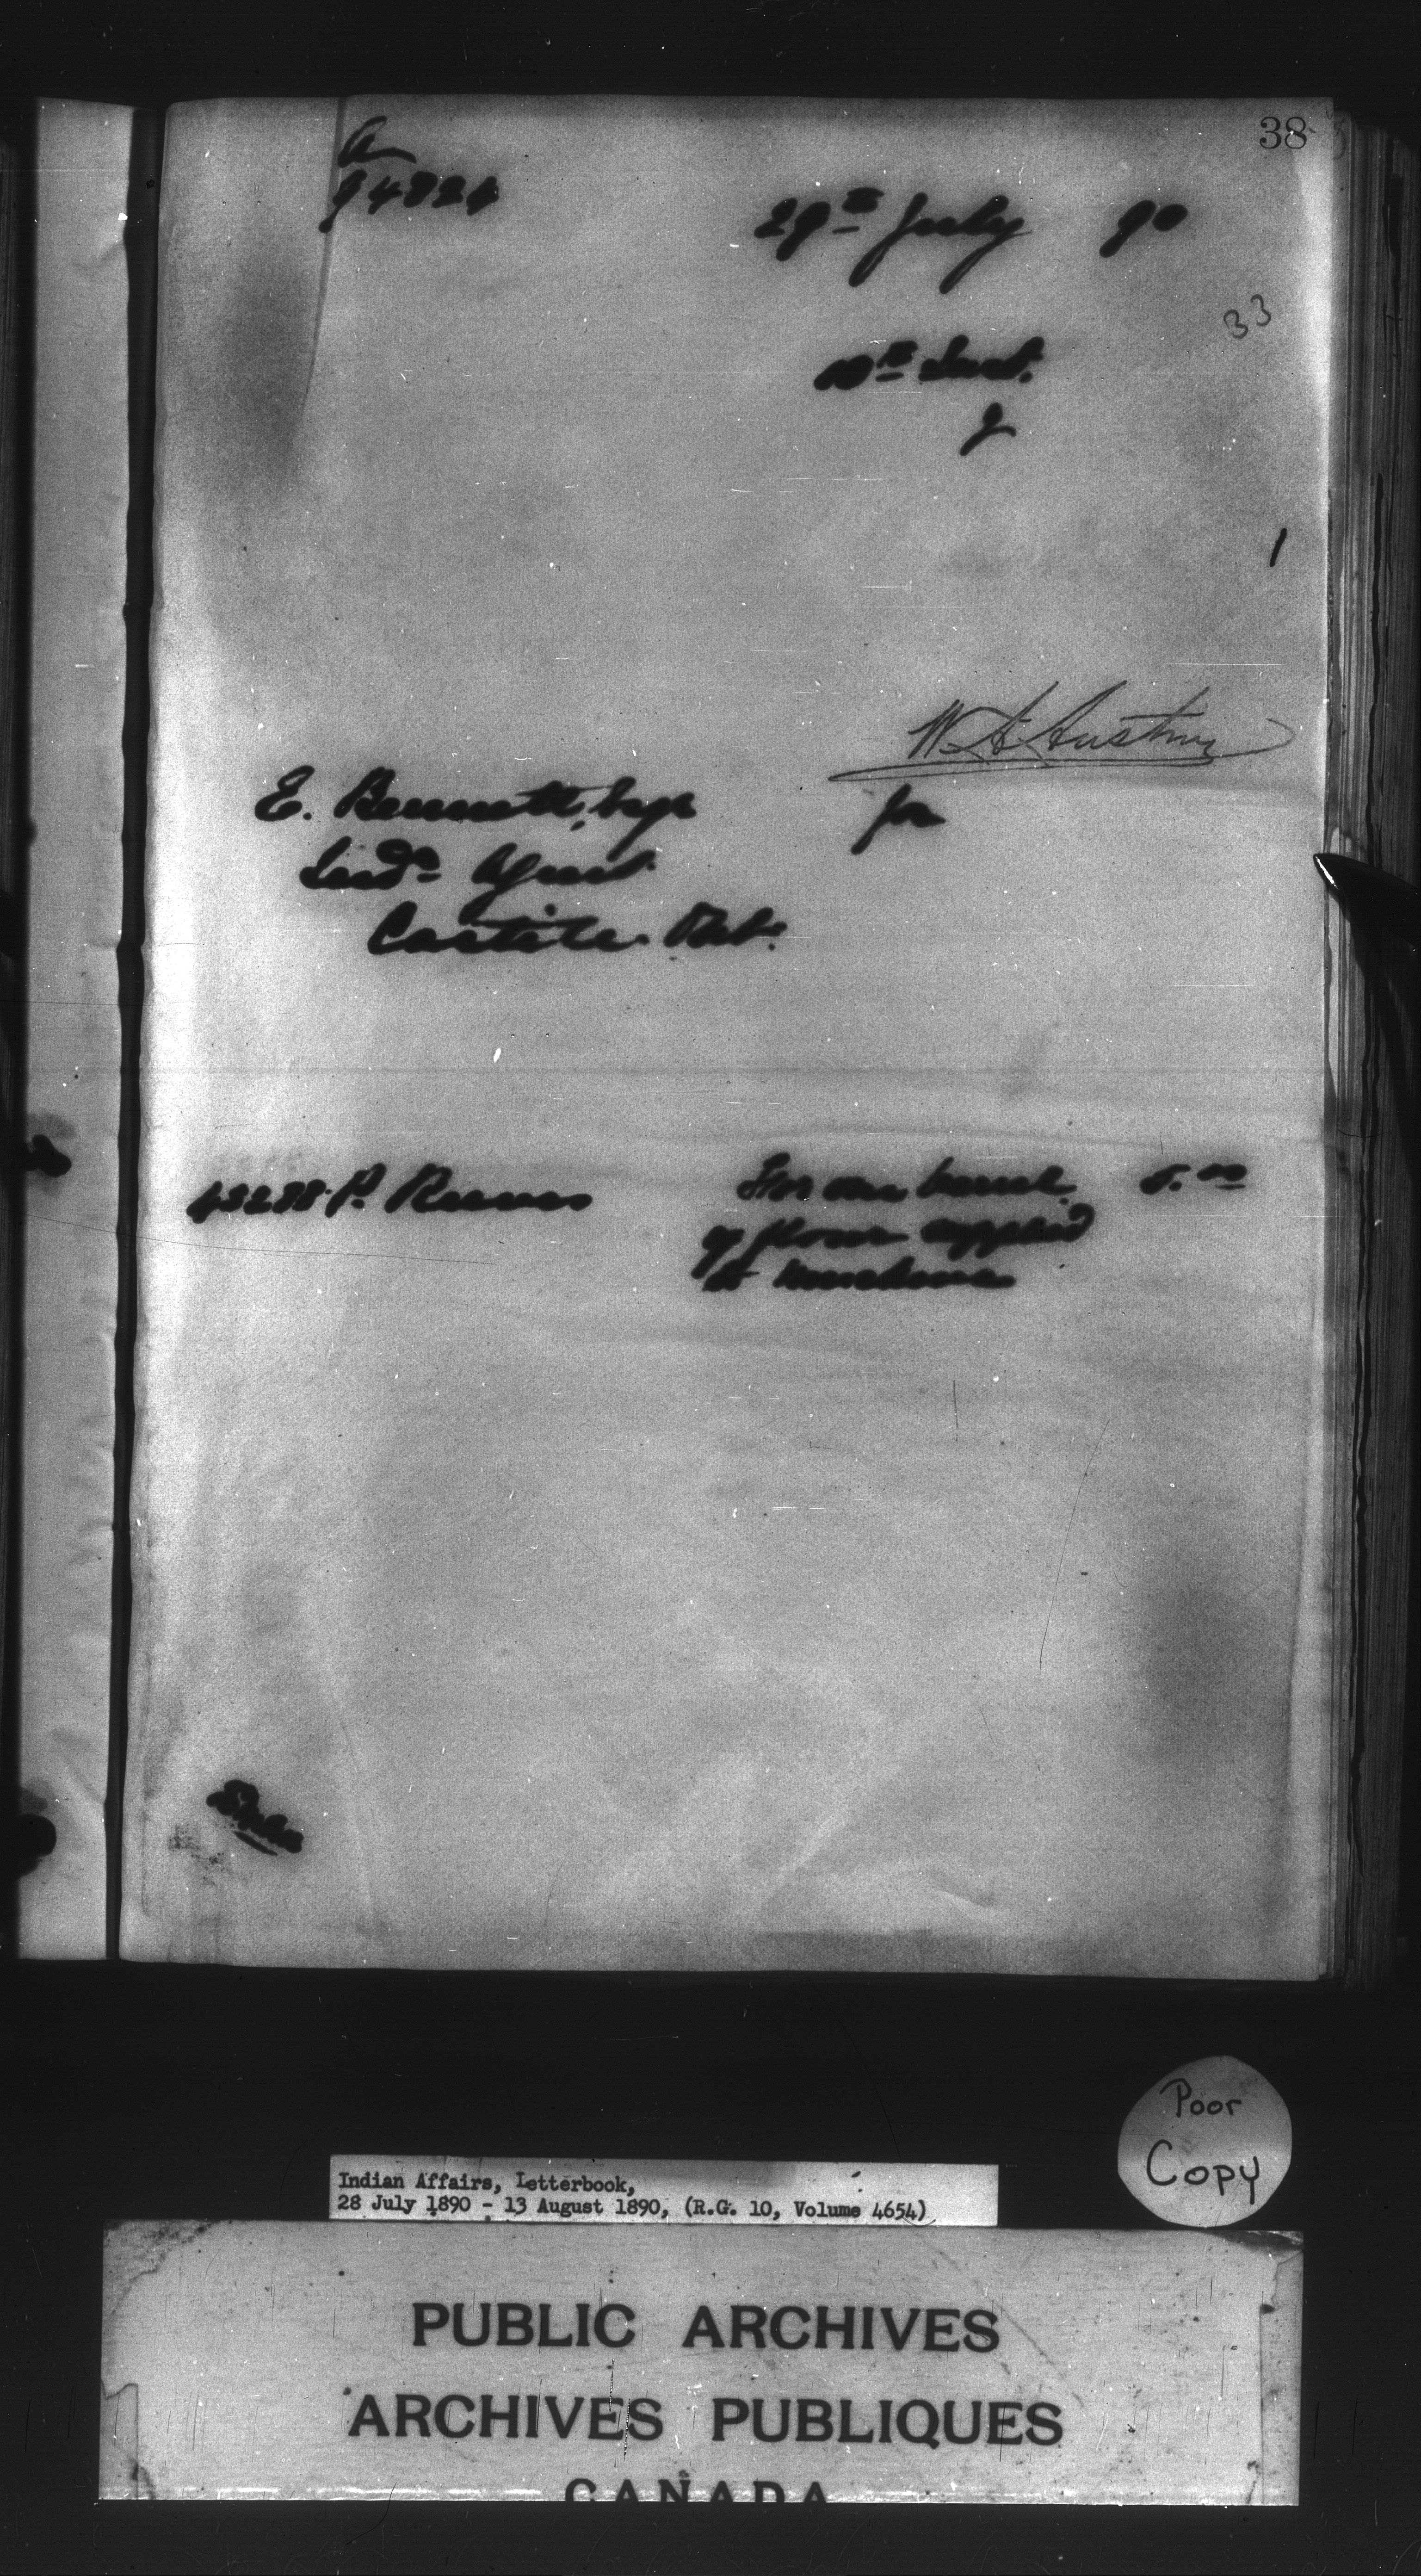 38
A
94824
29th July 90
33
10th Inst.
1
W A Austin
for
E. Bennett, Esqr
Ind. Agent
Eastville Ont.
43288 P. Reeves
For one barrel 5.00
of flour supplied
to
Poor
Copy
Indian Affairs, Letterbook,
28 July 1890 - 13 August 1890, (R.G. 10, Volume 4654)
PUBLIC ARCHIVES
ARCHIVES PUBLIQUES
CANADA